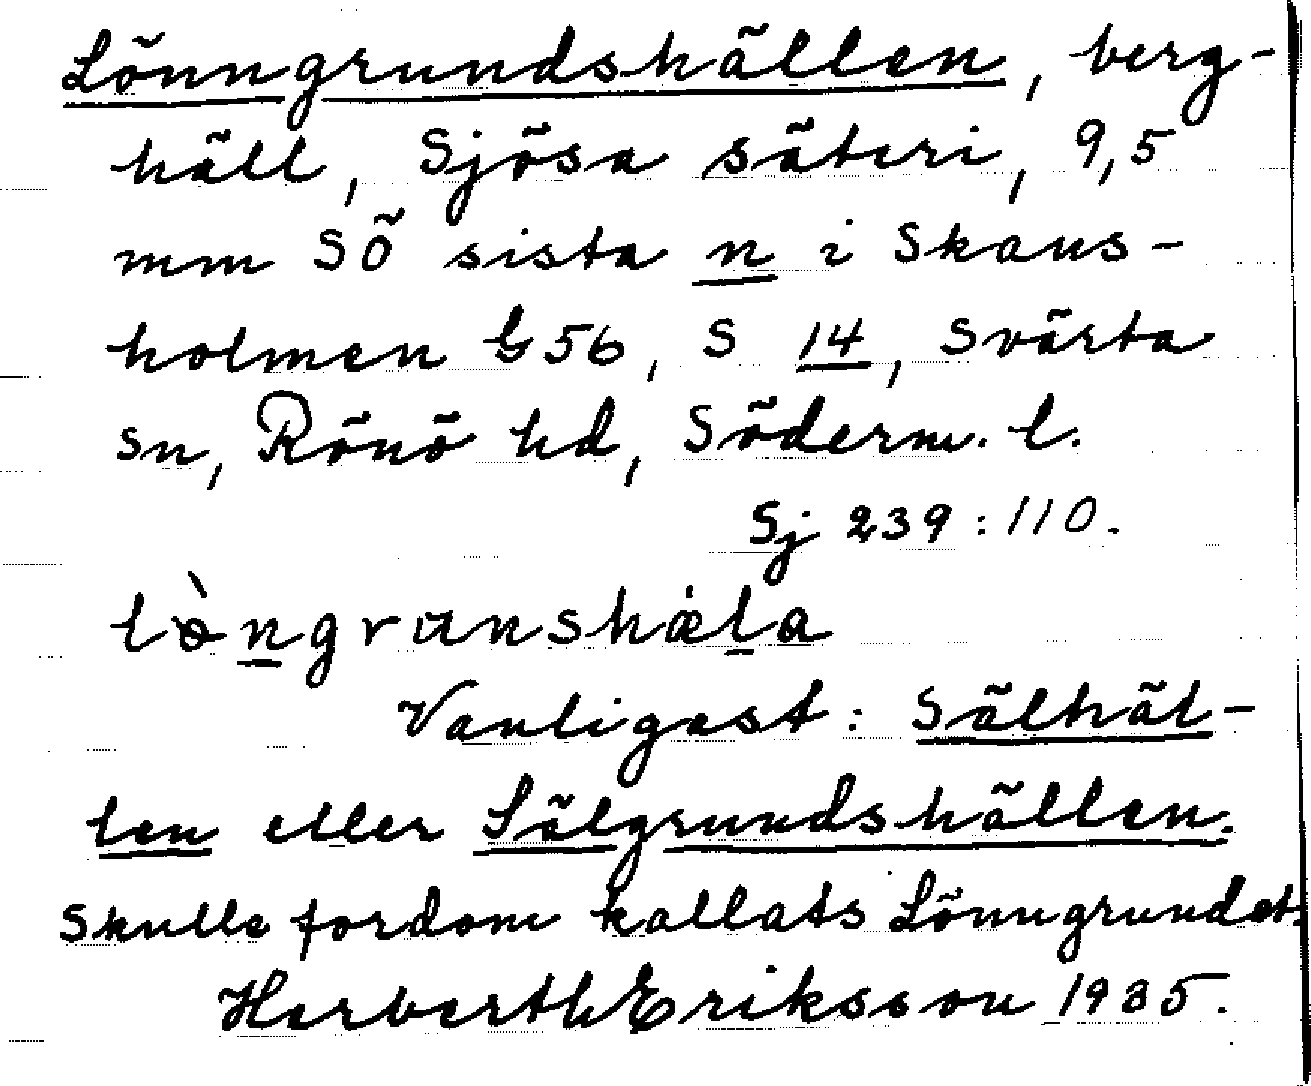 Lönngrundshällen, berg-
häll, Sjösa säteri, 9,5
mm SÖ sista n i Skans-
holmen G56, S 14, Svärta
sn, Rönö hd, Söderm. l.
Sj 239:110.
Vanligast: Sälhäl-
len eller Sälgrundshällen.
Skulle fordom kallats Lönngrundet.
Herberth Eriksson 1935.